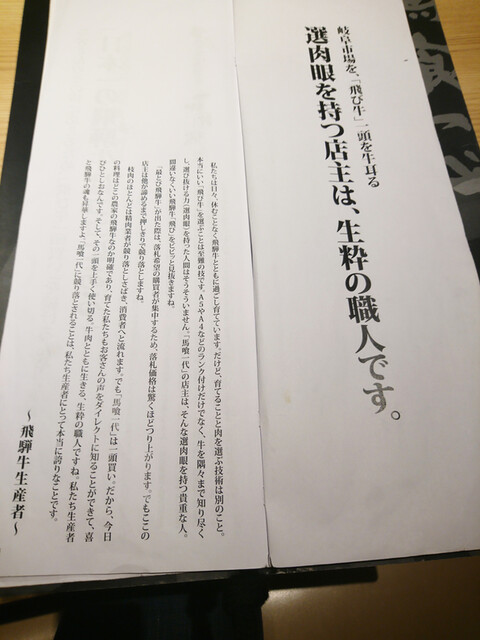 岐阜市場を、「飛び牛」一頭を牛耳る
選肉眼を持つ店主は、生粋の職人です。
私たちは日々、休むことなく飛騨牛とともに過ごし育てています。だけど、育てることと肉を選ぶ技術は別のこと。
本当にいい「飛び牛」を選ぶことは至難の技です。A5やA4などのランク付けだけでなく、牛を隅々まで知り尽く
し、選び抜ける力「選肉眼」を持った人間はそうそういません。「馬喰一代」の店主は、そんな選肉眼を持つ貴重な人。
間違いなくいい飛騨牛「飛び」をビビッと見抜きますね。
「最とび飛騨牛」が出た際は、落札希望の購買者が集中するため、落札価格は驚くほどつり上がります。でもここの
店主は他が諦めるまで押しきりで競り落としますね。
枝肉のほとんどは精肉業者が競り落としさばき、消費者へと流れます。でも「馬喰一代」は一頭買い。だから、今日
の料理はどこの農家の飛騨牛なのか明確であり、育てた私たちもお客さんの声をダイレクトに知ることができて、喜
びひとしおなんです。そして、その一頭を上手く使い切る、牛肉とともに生きる、生粋の職人ですね。私たち生産者
と飛騨牛の魂も昇華しますよ。「馬喰一代」に競り落とされることは、私たち生産者にとって本当に誇りなことです。
～飛騨牛生産者～